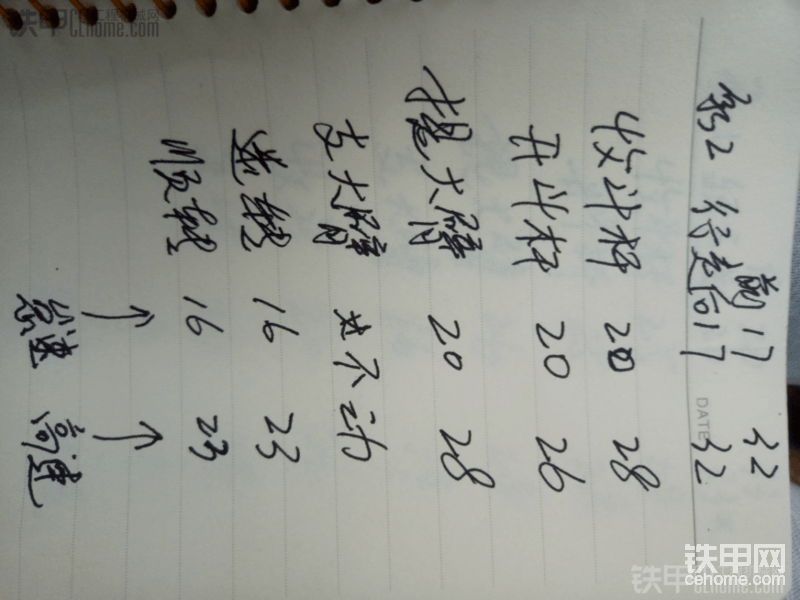 前17 32
泵2 行走后17 32
DATE
收斗杆 20 28
开斗杆 20 26
提大臂 20 28
支大臂 支不动
逆转 16 23
顺转 16 23
↑ ↑
怠速 高速
铁甲网
cehome.com